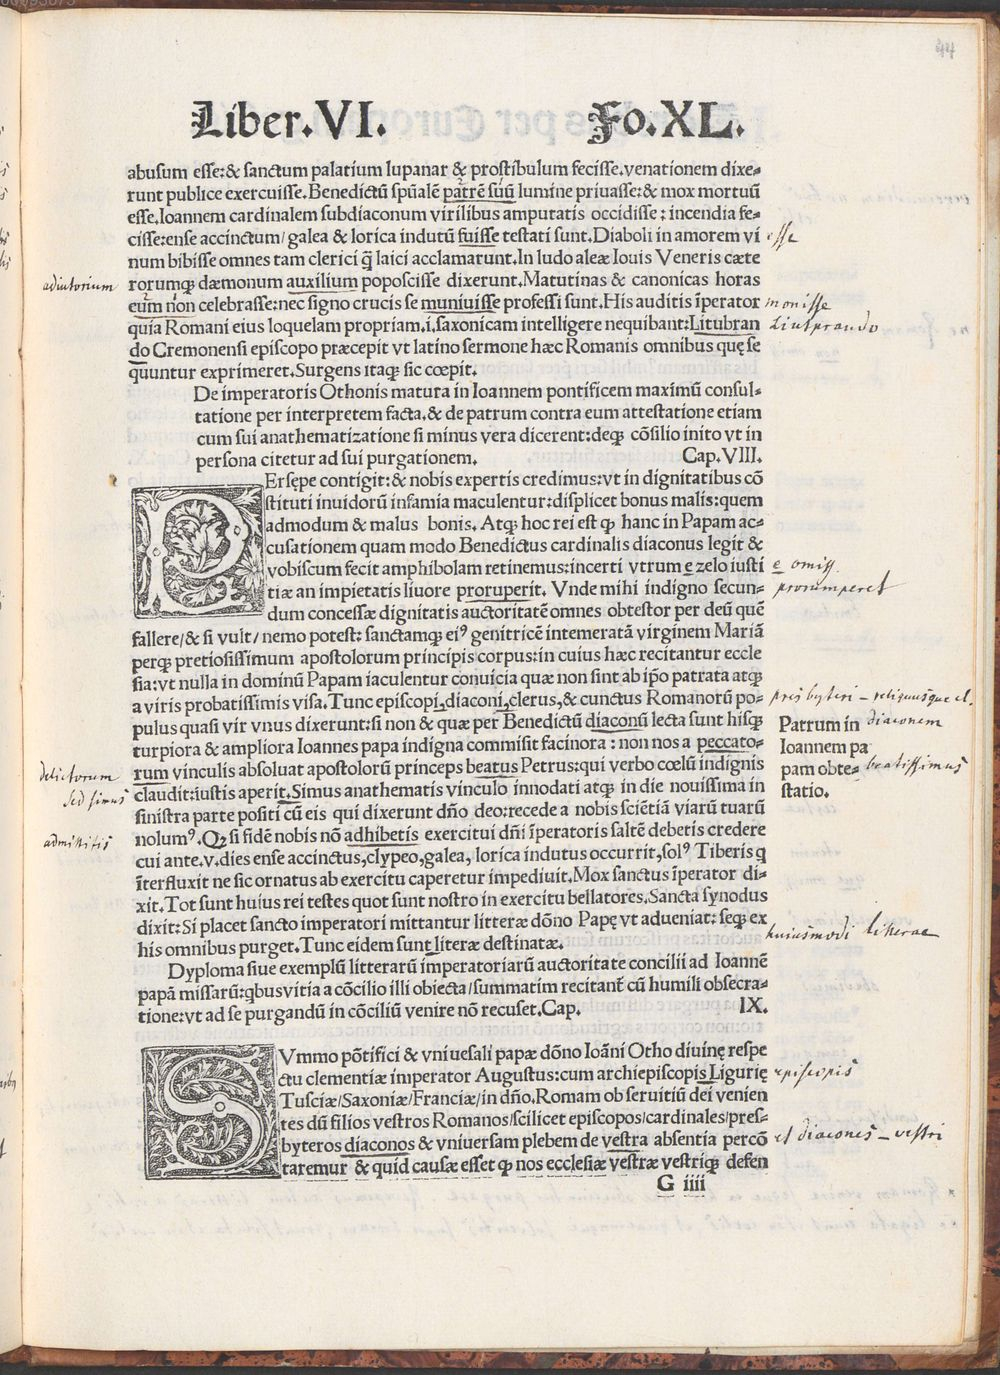 44
Liber.VI. Fo.XL.
abusum esse:& sanctum palatium lupanar & prostibulum fecisse.venationem dixe⸗
runt publice exercuisse.Benedictū spūalē patrē suū lumine priuasse:& mox mortuū
esse.Ioannem cardinalem subdiaconum virilibus amputatis occidisse : incendia fe⸗
cisse:ense accinctum/ galea & lorica indutū fuisse testati sunt.Diaboli in amorem vi
esse
num bibisse omnes tam clerici q̄ laici acclamarunt.In ludo aleæ Iouis Veneris cæte
adiutorium
rorumq; dæmonum auxilium poposcisse dixerunt.Matutinas & canonicas horas
eum non celebrasse:nec signo crucis se muniuisse professi sunt.His auditis īperator
monisse
quia Romani eius loquelam propriam.i.saxonicam intelligere nequibant:Litubran
Liutprando
do Cremonensi episcopo præcepit vt latino sermone hæc Romanis omnibus quę se
quuntur exprimeret.Surgens itaq; sic cœpit.
De imperatoris Othonis matura in Ioannem pontificem maximū consul⸗
tatione per interpretem facta.& de patrum contra eum attestatione etiam
cum sui anathematizatione si minus vera dicerent:deq; cōsilio inito vt in
persona citetur ad sui purgationem. Cap.VIII.
PErsępe contigit:& nobis expertis credimus:vt in dignitatibus cō
stituti inuidorū infamia maculentur:displicet bonus malis:quem
admodum & malus bonis. Atq; hoc rei est ꝙ hanc in Papam ac⸗
cusationem quam modo Benedictus cardinalis diaconus legit &
vobiscum fecit amphibolam retinemus:incerti vtrum e zelo iusti
e omiss
tiæ an impietatis liuore proruperit. Vnde mihi indigno secun⸗
prorumperet
dum concessæ dignitatis auctoritatē omnes obtestor per deū quē
fallere/& si vult/ nemo potest: sanctamq; eiꝰ genitricē intemeratā virginem Mariā
perq; pretiosissimum apostolorum principis corpus:in cuius hæc recitantur eccle
sia:vt nulla in dominū Papam iaculentur conuicia quæ non sint ab ip̄o patrata atq;
a viris probatissimis visa.Tunc episcopi,diaconi,clerus,& cunctus Romanorū po⸗
presbyteri – reliquusque cl.
pulus quasi vir vnus dixerunt:si non & quæ per Benedictū diaconū lecta sunt hisq;
Patrum in
diaconem
turpiora & ampliora Ioannes papa indigna commisit facinora : non nos a peccato⸗
Ioannem pa
delictorum
rum vinculis absoluat apostolorū princeps beatus Petrus:qui verbo cœlū indignis
pam obte⸗
beatissimus
sed simus
claudit:iustis aperit.Simus anathematis vinculo innodati atq; in die nouissima in
statio.
sinistra parte positi cū eis qui dixerunt dño deo:recede a nobis sciētiā viarū tuarū
nolumꝰ.Qꝫ si fidē nobis nō adhibetis exercitui dñi īperatoris saltē debetis credere
admittitis
cui ante.v.dies ense accinctus,clypeo,galea, lorica indutus occurrit.solꝰ Tiberis q
īterfluxit ne sic ornatus ab exercitu caperetur impediuit.Mox sanctus īperator di⸗
xit.Tot sunt huius rei testes quot sunt nostro in exercitu bellatores.Sancta synodus
dixit:Si placet sancto imperatori mittantur litteræ dōno Papę vt adueniat: seq; ex
his omnibus purget.Tunc eidem sunt literæ destinatæ.
huiusmodi litterae
Dyploma siue exemplū litterarū imperatoriarū auctoritate concilii ad Ioannē
papā missarū:qbusvitia a cōcilio illi obiecta/summatim recitant̄ cū humili obsecra⸗
tione:vt ad se purgandū in cōciliū venire nō recuset.Cap. IX.
SVmmo pōtifici & vniuesali papæ dōno Ioāni Otho diuinę respe
ctu clementiæ imperator Augustus:cum archiepiscopis Ligurię
episcopis
Tusciæ/Saxoniæ/Franciæ/in dño.Romam ob seruitiū dei venien
tes dū filios vestros Romanos/scilicet episcopos/cardinales/pres⸗
byteros diaconos & vniuersam plebem de vestra absentia percō
et diacones – vestri
taremur & quid causæ esset ꝙ nos ecclesiæ vestræ vestriq; defen
G iiii